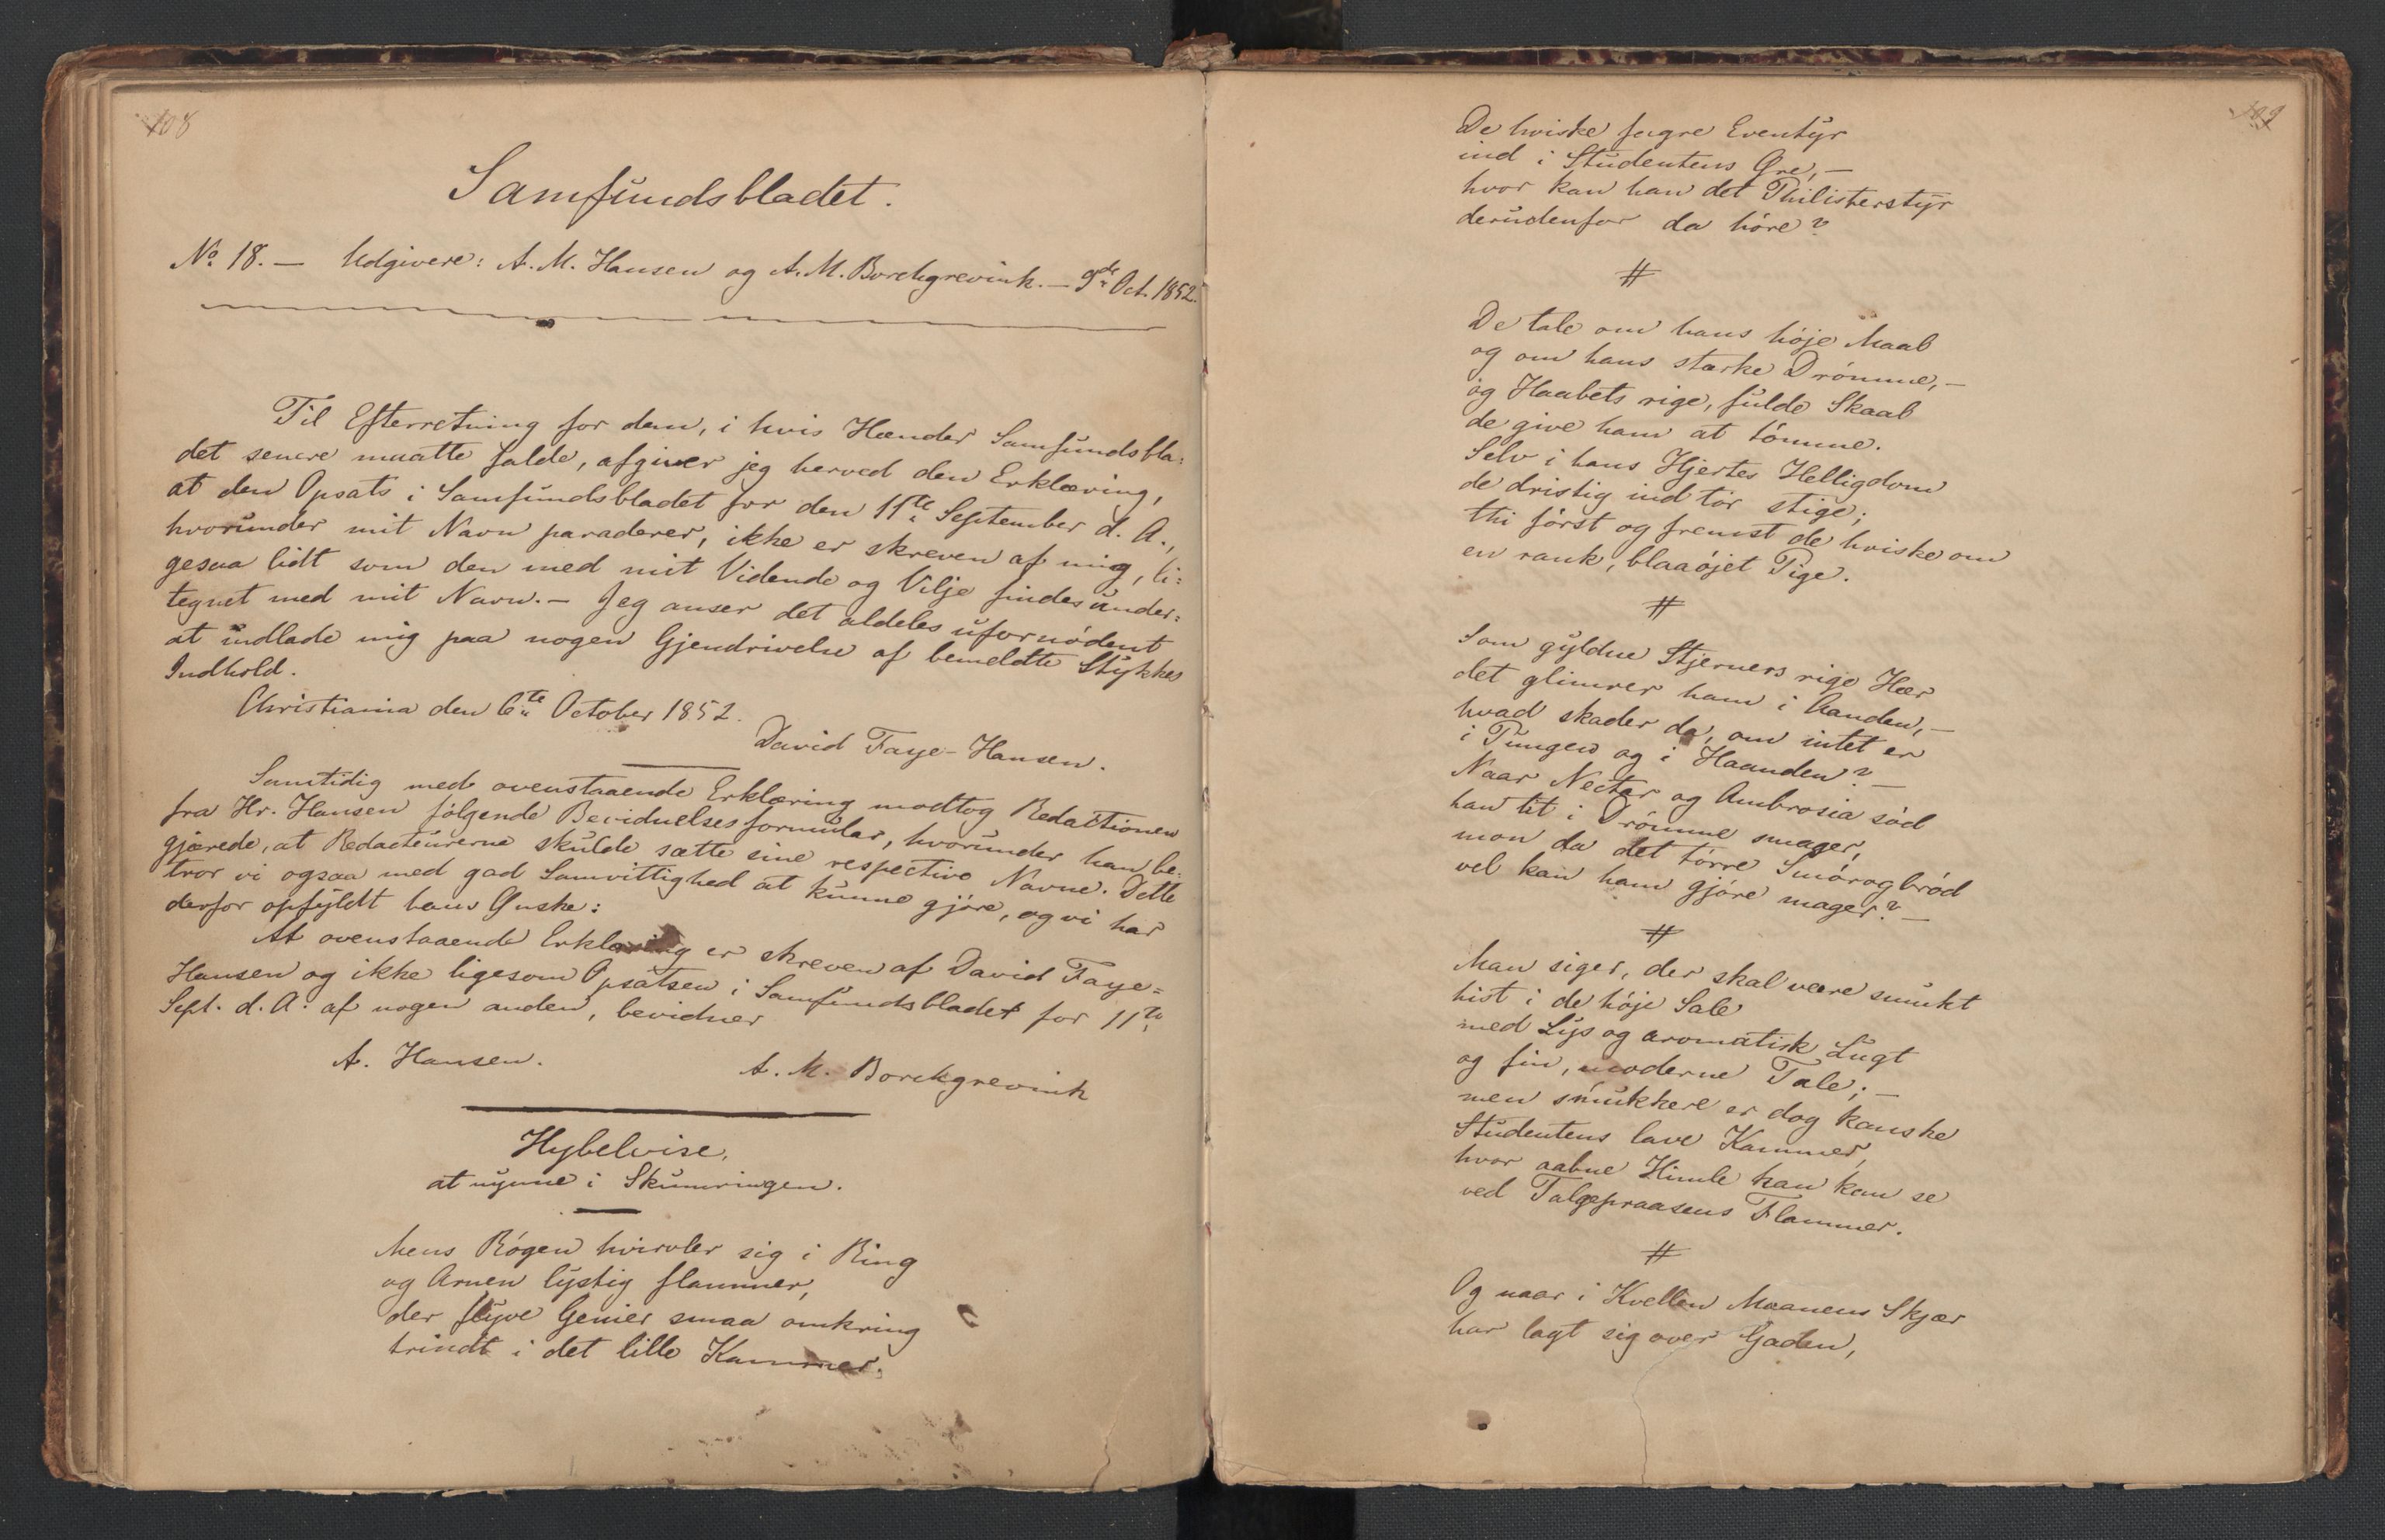 108
Samfundsbladet.
No 18. — Udgivere: A. M. Hansen og A. M. Borchgrevink. — 9de Oct. 1852.
Til Efterretning for dem, i hvis Hænder Samfundsbla-
det senere maatte falde, afgiver jeg herved den Erklæring,
at den Opsats i Samfundsbladet for den 11te September d. A.,
hvorunder mit Navn paraderer, ikke er skreven af mig, li-
gesaa lidt som den med mit Vidende og Vilje findes under-
tegnet med mit Navn. — Jeg anser det aldeles ufornødent
at indlade mig paa nogen Gjendrivelse af bemeldte Stykkes
Indhold.
Christiania den 6te October 1852.
David Faye-Hansen.
Samtidig med ovenstaaende Erklæring modtog Redactionen
fra Hr. Hansen følgende Bevidnelsesformular, hvorunder han be-
gjærede, at Redacteurerne skulde sætte sine respective Navne. Dette
tror vi ogsaa med god Samvittighed at kunne gjøre, og vi har
derfor opfyldt hans Ønske:
At ovenstaaende Erklæring er skreven af David Faye-
Hansen og ikke ligesom Opsatsen i Samfundsbladet for 11te
Sept. d. A. af nogen anden, bevidner
A. Hansen.
A. M. Borchgrevink
Hybelvise,
at nynne i Skumringen.
Mens Røgen hvirvler sig i Ring
og Arnen lystig flammer,
der flyve Genier smaa omkring
trindt i det lille Kammer.
109
De hviske fagre Eventyr
ind i Studentens Øre, —
hvor kan han det Philisterstyr
derudenfor da høre?
#
De tale om hans høje Maal
og om hans stærke Drømme, —
og Haabets rige, fulde Skaal
de give ham at tømme.
Selv i hans Hjertes Helligdom
de dristig ind tør stige;
thi først og fremst de hviske om
en rank, blaaøjet Pige.
#
Som gyldne Stjerners rige Hær
det glimrer ham i Aanden, —
hvad skader da, om intet er
i Pungen og i Haanden? —
Naar Nectar og Ambrosia sød
han tit i Drømme smager,
mon da det tørre Smørogbrød
vel kan ham gjøre mager? —
#
Man siger, der skal være smukt
hist i de høje Sale
med Lys og aromatisk Lugt
og fin, moderne Tale; —
men smukkere er dog kanske
Studentens lave Kammer,
hvor aabne Himle han kan se
ved Talgepraasens Flammer.
#
Og naar i Kvellen Maanens Skjær
har lagt sig over Gaden,